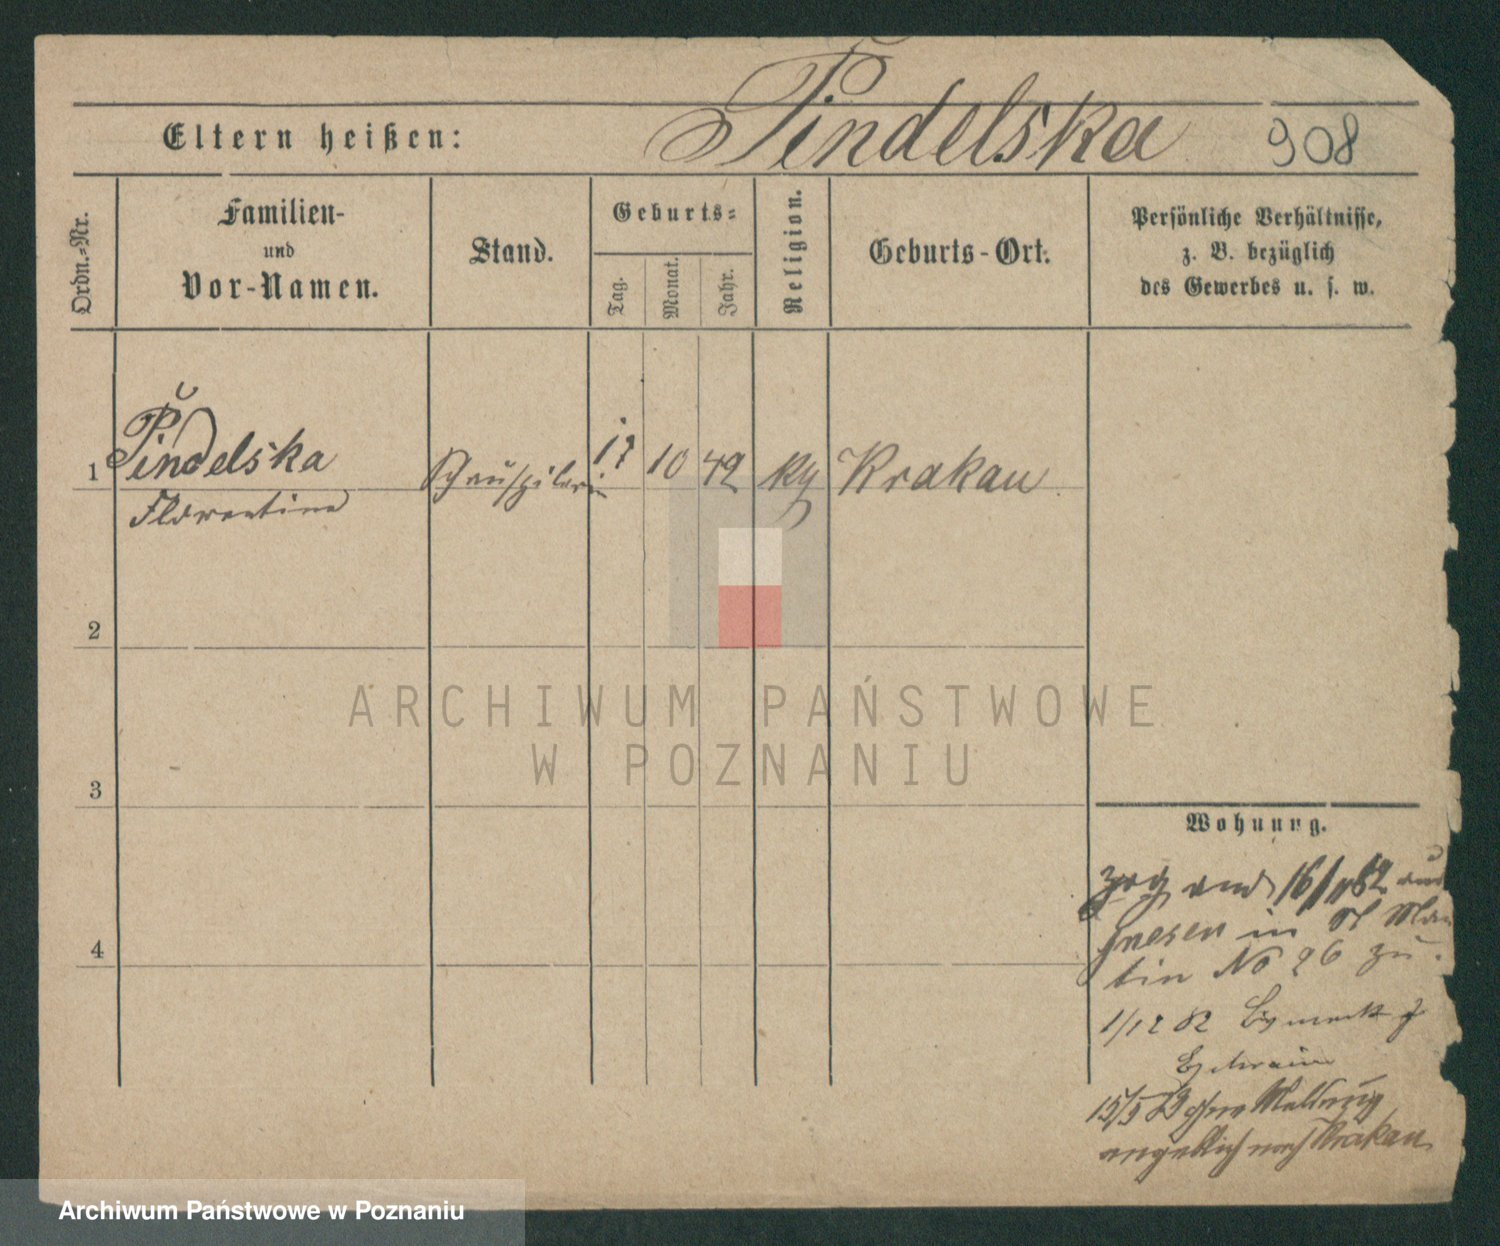 Pindelska 908
Eltern heißen:
Ordn.-Nr.
Familien-
und
Vor-Namen.
Stand.
Geburts-
Tag.
Monat.
Jahr.
Religion.
Geburts-Ort.
Persönliche Verhältnisse,
z. B. bezüglich
des Gewerbes u. s. w.
1 Pindelska Schauspilerin 10 Krakau
Florentine
2
3
4
ARCHIWUM PAŃSTWOWE
W POZNANIU
Wohnung.
zog am 16/11 82 aus
Gnesen in St Mar
tin No 26 zu.
1/12 82
Ephraim
15/5 ohne Meldung
angeblich nach Krakau
Archiwum Państwowe w Poznaniu